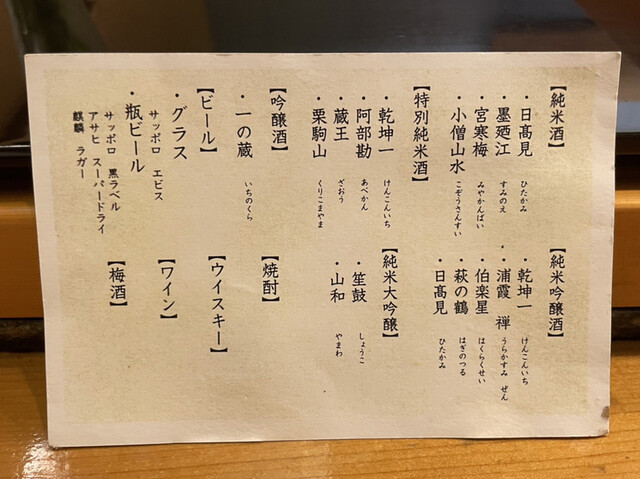 【純米酒】
・日髙見 ひたかみ
・墨廼江 すみのえ
・宮寒梅 みやかんばい
・小僧山水 こぞうさんすい
【特別純米酒】
・乾坤一 けんこんいち
・阿部勘 あべかん
・蔵王 ざおう
・栗駒山 くりこまやま
【吟醸酒】
・一の蔵 いちのくら
【ビール】
・グラス
サッポロ エビス
・瓶ビール
サッポロ 黒ラベル
アサヒ スーパードライ
麒麟 ラガー
【純米吟醸酒】
・乾坤一 けんこんいち
・浦霞 禅 うらかすみ ぜん
・伯楽星 はくらくせい
・萩の鶴 はぎのつる
・日髙見 ひたかみ
【純米大吟醸】
・笙鼓 しょうこ
・山和 やまわ
【焼酎】
【ウイスキー】
【ワイン】
【梅酒】